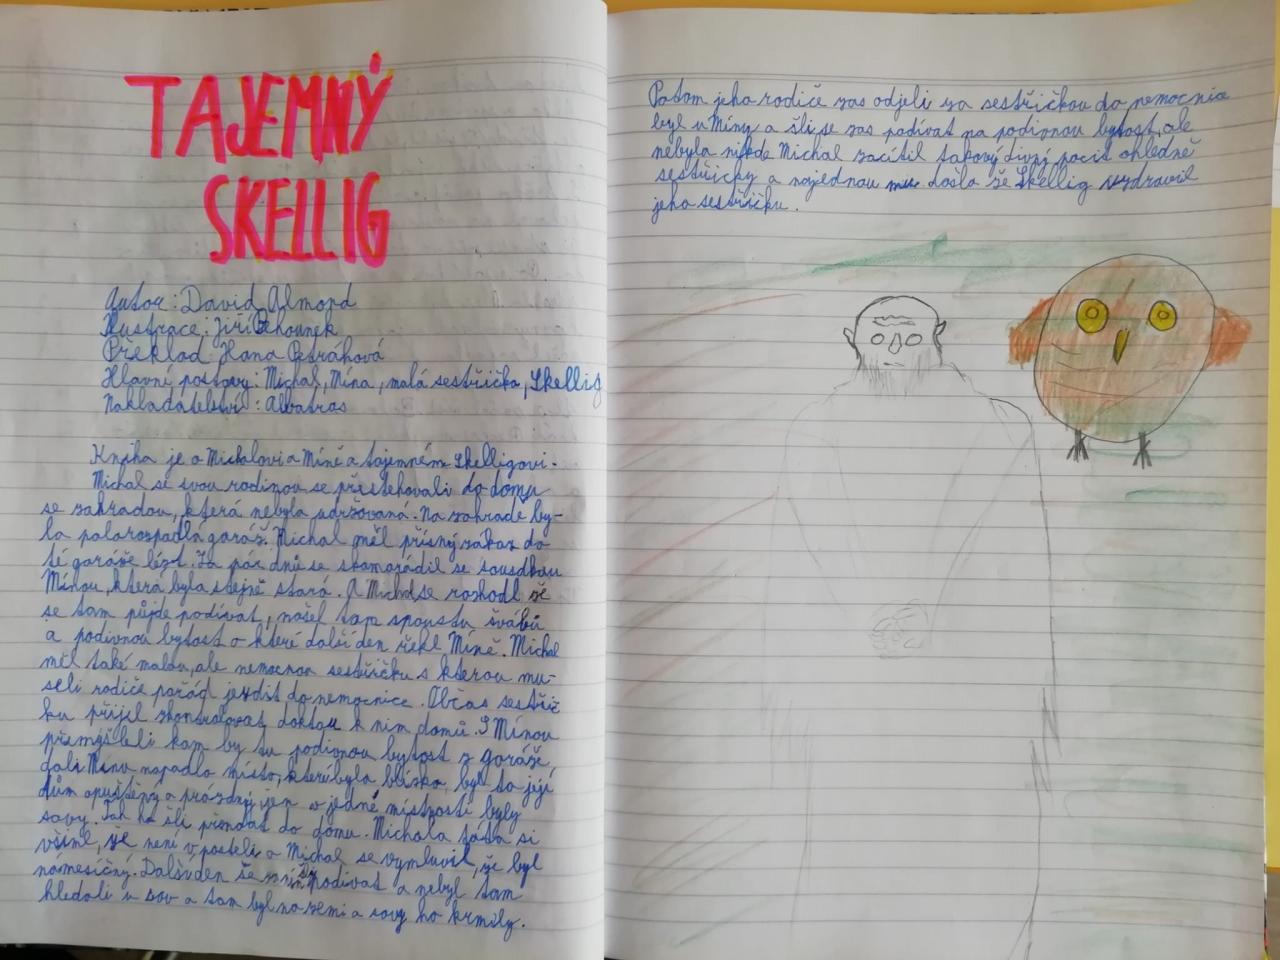 TAJEMNÝ
SKELLIG
Autor: David Almond
Ilustrace: Jiří Běhounek
Překlad: Hana Petráková
Hlavní postavy: Michal, Mína, malá sestřička, Skellig
Nakladatelství: Albatros
Kniha je o Michalovi a Míně a tajemném Skelligovi.
Michal se svou rodinou se přestěhovali do domu
se zahradou, která nebyla udržovaná. Na zahradě by-
la polorozpadlá garáž. Michal měl přísný zákaz do
té garáže lézt. Za pár dnů se skamarádil se sousedkou
Mínou, která byla stejně stará. A Michal se rozhodl že
se tam půjde podívat, našel tam spoustu švábů
a podivnou bytost o které další den řekl Míně. Michal
měl také malou, ale nemocnou sestřičku s kterou mu-
seli rodiče pořád jezdit do nemocnice. Občas sestřič
ku přijel zkontrolovat doktor k nim domů. S Mínou
přemýšleli kam by tu podivnou bytost z garáže,
dali Mínu napadlo místo, které byla blízko, byl to její
dům opuštěný a prázdný jen v jedné místnosti byly
sovy. Tak ho šli přendat do domu. Michala táta si
všiml, že není v posteli a Michal se vymluvil, že byl
náměsíčný. Další den še podívat a nebyl tam
hledali u sov a tam byl na zemi a sovy ho krmily.
Potom jeho rodiče zas odjeli za sestřičkou do nemocnice
byl u Míny a šli se zas podívat na podivnou bytost, ale
nebyla nikde Michal zacítil takový divný pocit ohledně
sestřičky a najednou mu došlo že Skellig uzdravil
jeho sestřičku.